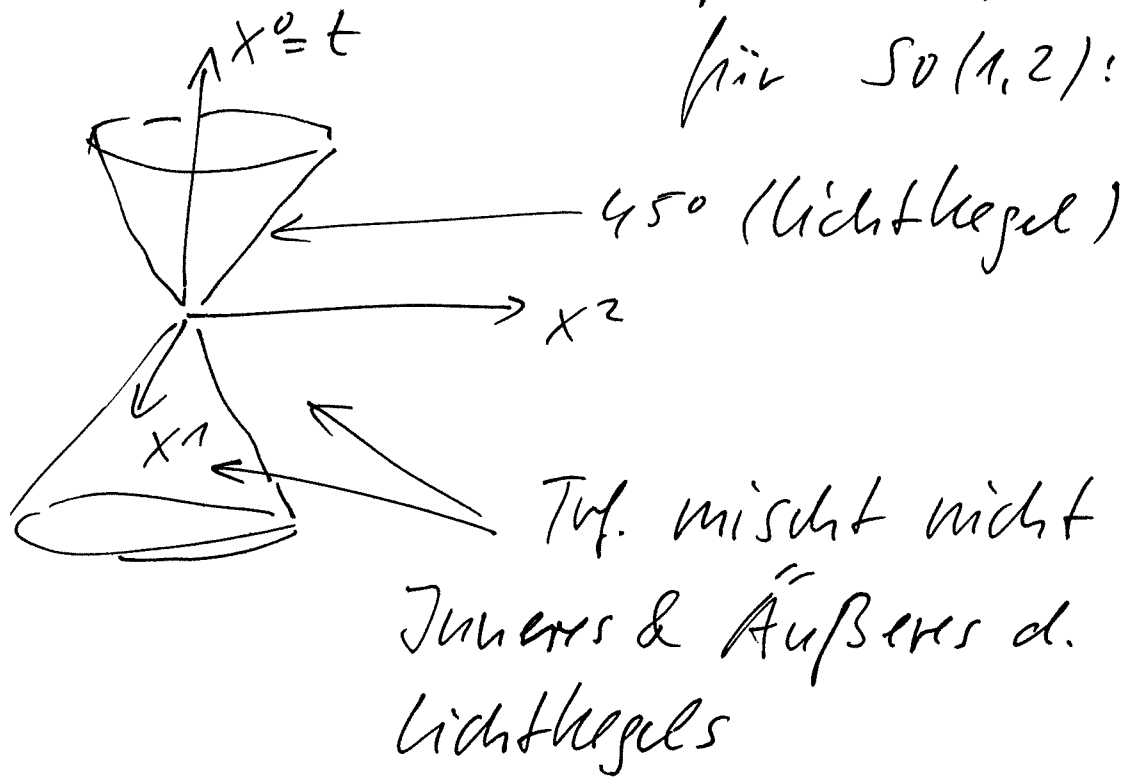 x⁰ = t
für SO(1,2):
45° (Lichtkegel)
x²
x¹
Trf. mischt nicht
Inneres & Äußeres d.
Lichtkegels